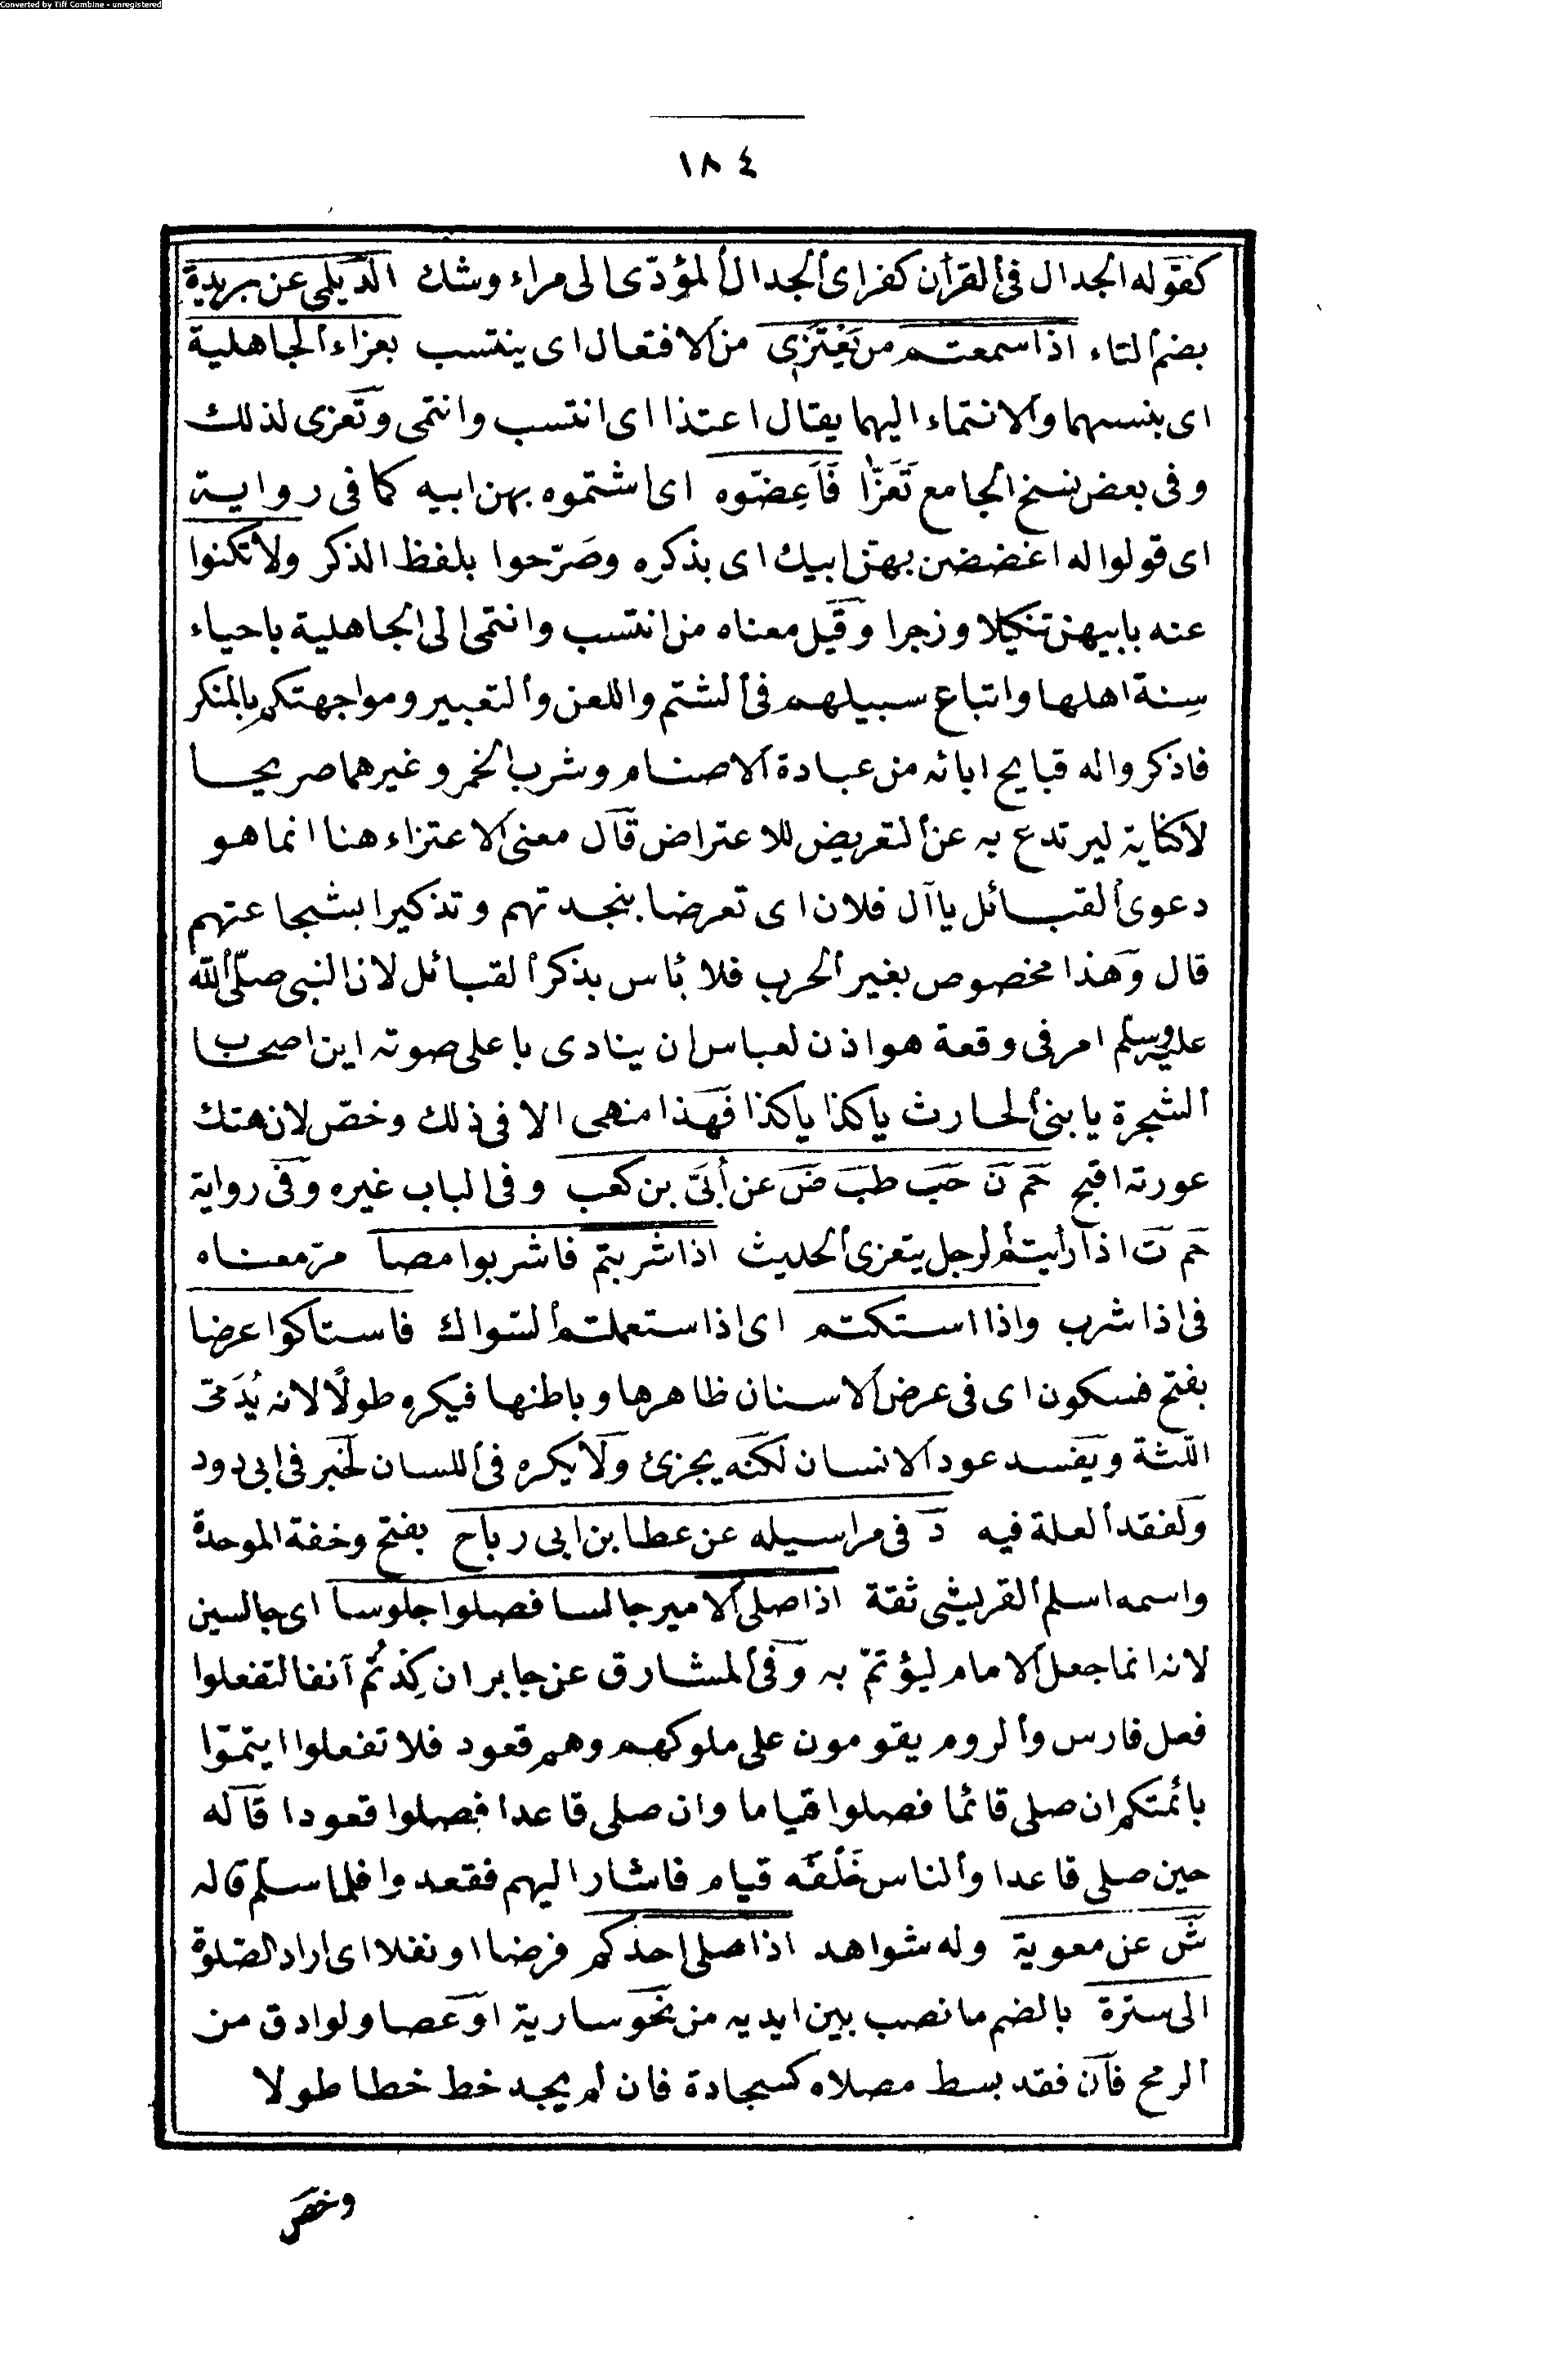 Converted by Tiff Combine - unregistered
١٨٤
كقوله الجدال فى القرأن كفر اى الجدال المؤدّى الى مراء وشك الدّيلمى عن بريدة
بضم التاء اذا سمعتم من يَعْتَزِى من الافتعال اى ينتسب بعزاء الجاهلية
اى بنسبها والانتماء اليها يقال اعتذا اى انتسب وانتمى وتعزى لذلك
وفى بعض نسخ الجامع تَعَزّا فَاَعِضّوه اى اشتموه بهن ابيه كما فى رواية
اى قولوا له اعضضن بهن ابيك اى بذكره وصَرّحوا بلفظ الذكر ولا تكنوا
عنه بابيهن تنكيلا وزجرا وقيل معناه من انتسب وانتمى الى الجاهلية باحياء
سنة اهلها واتباع سبيلهم فى الشتم واللعن والتعيير ومواجهتكم بالمنكر
فاذكروا له قبايح ابائه من عبادة الاصنام وشرب الخمر وغيرهما صريحا
لا كناية ليرتدع به عن التعريض للاعتراض قال معنى الاعتزاء هنا انما هو
دعوى القبائل يا آل فلان اى تعرضا بنجدتهم وتذكيرا بشجاعتهم
قال وهذا مخصوص بغير الحرب فلا بأس بذكر القبائل لان النبى صلّى الله
عليه وسلم امر فى وقعة هواذن لعباس ان ينادى باعلى صوته اين اصحاب
الشجرة يا بنى الحارث ياكذا ياكذا فهذا منهى الا فى ذلك وخصّ لان هتك
عورته اقبح حم ن حب طب ض عن أُبَىّ بن كعب وفى الباب غيره وفى رواية
حم ت اذا رأيتم الرجل يتعزى الحديث اذا شربتم فاشربوا مصا مرّ معناه
فى اذا شرب واذا استكتم اى اذا ستعملتم السّواك فاستاكوا عرضا
بفتح فسكون اى فى عرض الاسنان ظاهرها وباطنها فيكره طولًا لانه يُدَمىّ
اللّثة ويفسد عود الانسان لكنه يجزئ ولا يكره فى اللسان لخبر فى ابى دود
ولفقد العلة فيه د فى مراسيله عن عطا بن ابى رباح بفتح وخفة الموحدة
واسمه اسلم القريشى ثقة اذا صلى الامير جالسا فصلوا جلوسا اى جالسين
لانه انما جعل الامام ليؤتمّ به وفى المشارق عن جابر ان كِدْتُم آنفا لتفعلوا
فعل فارس والروم يقومون على ملوكهم وهم قعود فلا تفعلوا ايتمّوا
بائمتكم ان صلى قائما فصلوا قياما وان صلى قاعدا فصلوا قعودا قاله
حين صلى قاعدا والناس خَلْفَه قيام فاشار اليهم فقعدوا فلما سلّم قاله
ش عن معوية وله شواهد اذا صلى احدكم فرضا او نفلا اى اراد الصّلوة
الى سترة بالضم ما نصب بين ايديه من نحو سارية او عصا ولو ادق من
الرمح فان فقد بسط مصلاه كسجادة فان لم يجد خط خطا طولا
وخصّ